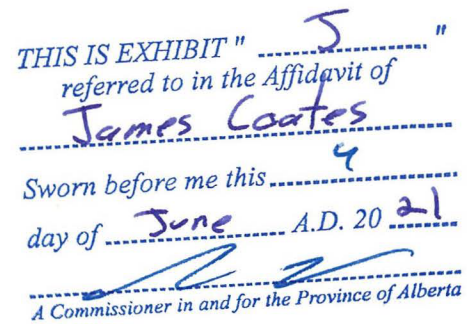 THIS IS EXHIBIT " J "
referred to in the Affidavit of
James Coates
Sworn before me this 4
day of June A.D. 20 21
A Commissioner in and for the Province of Alberta